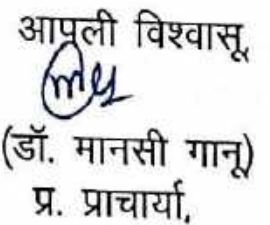 आपली विश्वासू,
(डॉ. मानसी गानू)
प्र. प्राचार्या,